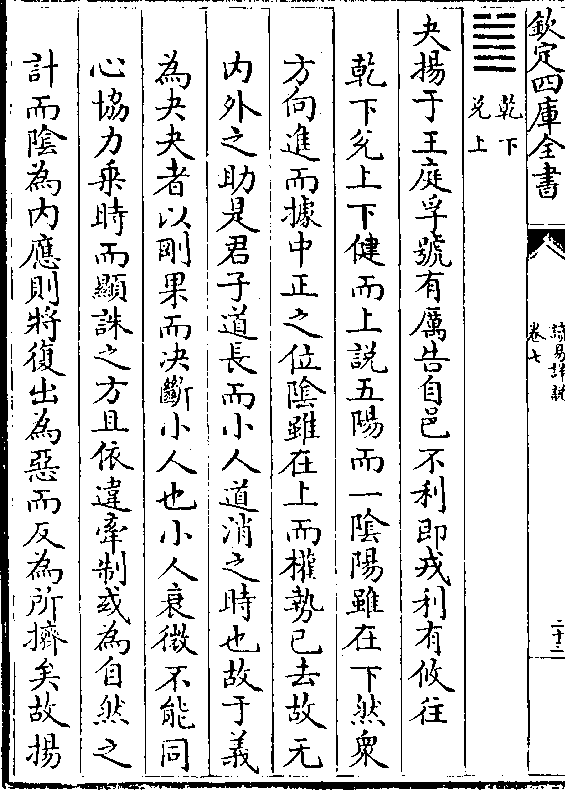 欽定四庫全書
讀易詳說
卷七
二十二
乾下
兌上
夬揚于王庭孚號有厲告自邑不利即戎利有攸往
乾下兌上下健而上說五陽而一陰陽雖在下然衆
方向進而據中正之位陰雖在上而權勢已去故无
内外之助是君子道長而小人道消之時也故于義
為夬夬者以剛果而決斷小人也小人衰微不能同
心協力乘時而顯誅之方且依違牽制或為自然之
計而陰為内應則將復出為惡而反為所擠矣故揚